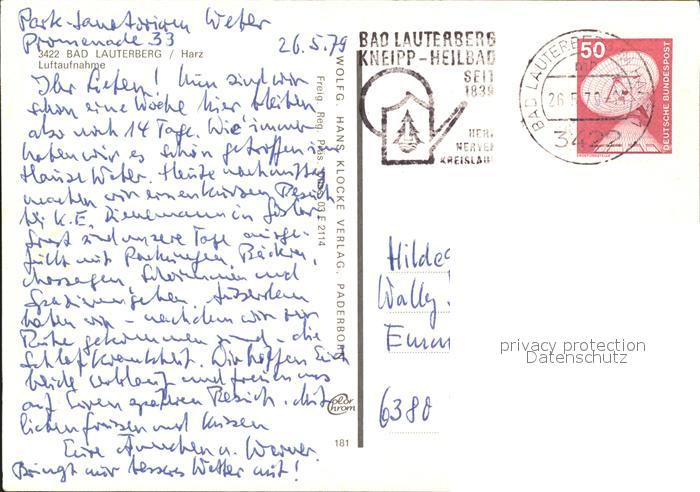 Park-Sanatorium Weber
Promenade 33
26.5.79
3422 BAD LAUTERBERG / Harz
Luftaufnahme
Ihr Lieben! Nun sind wir
schon eine Woche hier bleiben
also noch 14 Tage. Wie immer
haben wir es schön getroffen i.
Hause Weber. Heute nachmittag
machen wir einen kurzen Besuch
bei K.E. in
sonst sind unsere Tage ausge-
füllt mit Packungen, Bädern,
Massagen, Schwimmen und
Spazierengehen. Ausserdem
haben wir - nachdem wir zur
Ruhe gekommen sind - die
Schlafkrankheit. Wir hoffen Euch
beide wohlauf und freuen uns
auf Euren späteren Besuch. Mit
lieben Grüssen und Küssen
Eure Ännchen u. Werner.
Bringt nur besseres Wetter mit!
WOLFG. HANS KLOCKE VERLAG, PADERBORN
Freig. Reg. Präs. 03 E 2114
color
chrom
181
BAD LAUTERBERG
KNEIPP-HEILBAD
SEIT
1839
HERZ
NERVEN
KREISLAUF
BAD LAUTERBERG IM HARZ
mb
26.5.79
3422
50
DEUTSCHE BUNDESPOST
Hilde
Wally
6380
privacy protection
Datenschutz